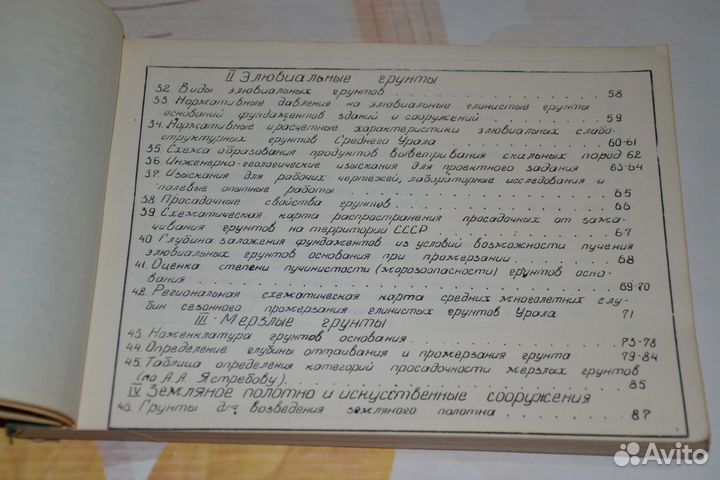 II Элювиальные грунты
32. Виды элювиальных грунтов . . . . . . . . . 58
33. Нормативные давления на элювиальные глинистые грунты
оснований фундаментов зданий и сооружений . . . . . 59
34. Нормативные и расчетные характеристики элювиальных слабо-
структурных грунтов Среднего Урала . . . . . . . 60-61
35. Схема образования продуктов выветривания скальных пород 62
36. Инженерно-геологические изыскания для проектного задания 63-64
37. Изыскания для рабочих чертежей, лабораторные исследования и
полевые опытные работы . . . . . . . . . . 65
38. Просадочные свойства грунтов . . . . . . . . 66
39. Схематическая карта распространения просадочных от зама-
чивания грунтов на территории СССР . . . . . . . 67
40 Глубина заложения фундаментов из условий возможности пучения
элювиальных грунтов основания при промерзании . . . . 68
41. Оценка степени пучинистости (морозоопасности) грунтов осно-
вания . . . . . . . . . . . . . . 69-70
42. Региональная схематическая карта средних многолетних глу-
бин сезонного промерзания глинистых грунтов Урала 71
III - Мерзлые грунты
43. Номенклатура грунтов основания . . . . . . . . 73-78
44. Определение глубины оттаивания и промерзания грунта 79-84
45. Таблица определения категорий просадочности мерзлых грунтов
(по А.А. Ястребову). . . . . . . . . . . . 85
IV Земляное полотно и искусственные сооружения
46. Грунты для возведения земляного полотна . . . . . . 87
Avito